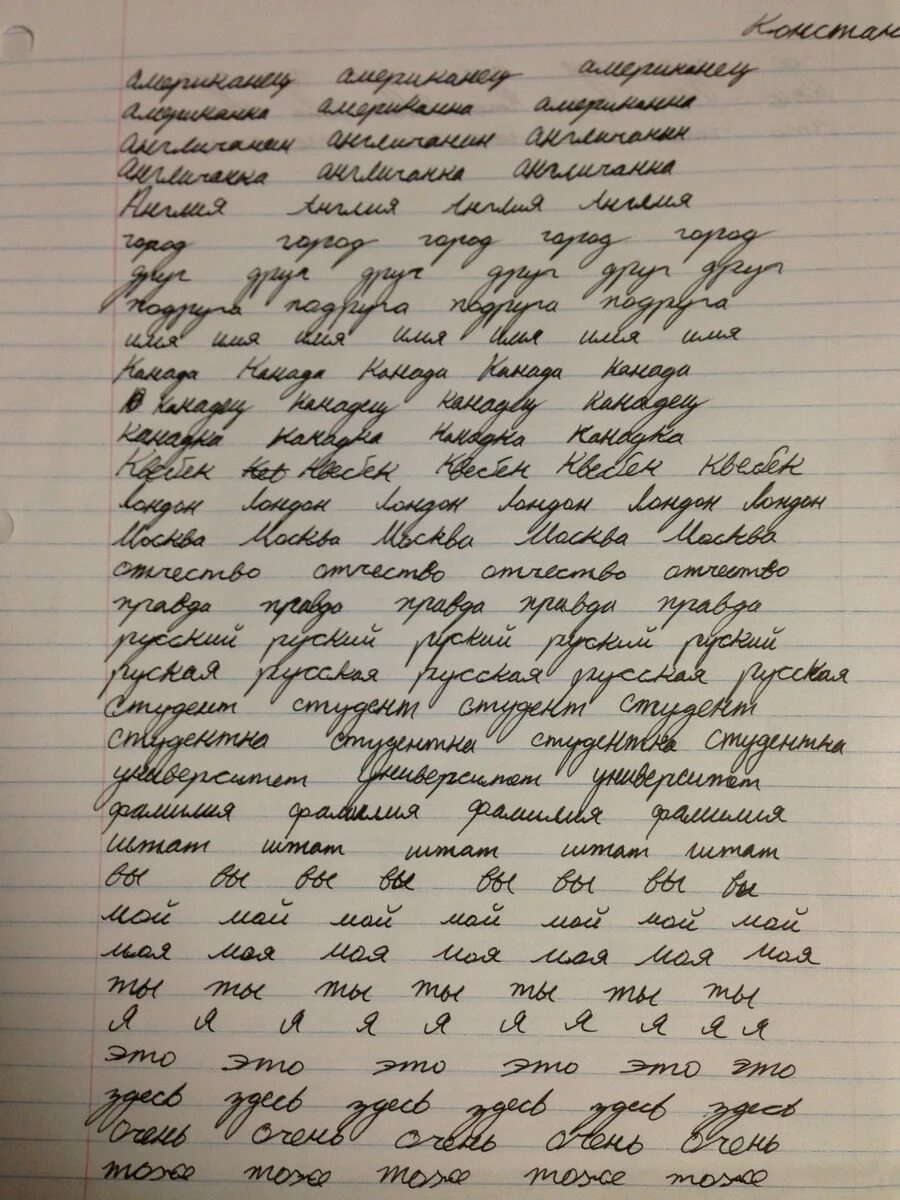 Констан
американец американец американец
американка американка американка
англичанин англичанин англичанин
англичанка англичанка англичанка
Англия Англия Англия Англия
город город город город город
друг друг друг друг друг друг
подруга подруга подруга подруга
имя имя имя имя имя имя имя
Канада Канада Канада Канада Канада
канадец канадец канадец канадец
канадка канадка канадка канадка
Квебек Квебек Квебек Квебек Квебек
Лондон Лондон Лондон Лондон Лондон Лондон
Москва Москва Москва Москва Москва
отчество отчество отчество отчество
правда правда правда правда правда
русский руский руский руский руский
руская русская русская русская русская
студент студент студент студент
студентка студентка студентка студентка
университет университет университет
фамилия фамилия фамилия фамилия
штат штат штат штат штат
вы вы вы вы вы вы вы вы
мой мой мой мой мой мой мой
моя моя моя моя моя моя моя
ты ты ты ты ты ты ты
я я я я я я я я я я
это это это это это это
здесь здесь здесь здесь здесь здесь
очень очень очень очень очень
тоже тоже тоже тоже тоже